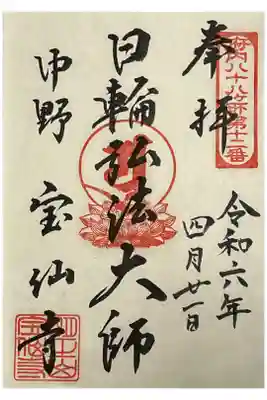 奉拝
府内八十八ヶ所第十二番
令和六年
四月廿一日
日輪弘法大師
中野 宝仙寺